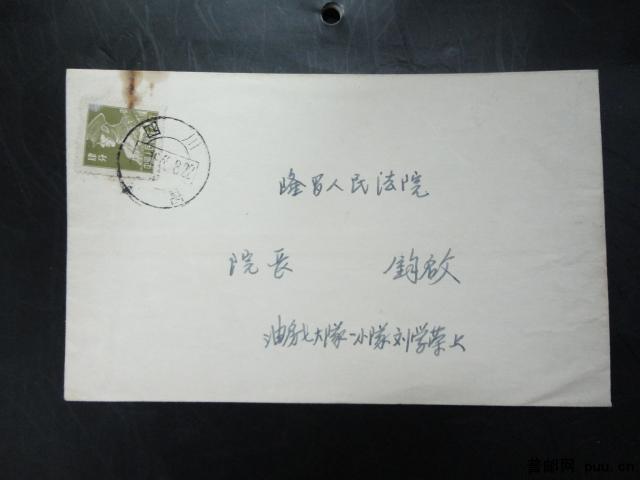 四川
8.22
隆昌人民法院
院长 鈞啟
油房七大隊一小隊刘学荣上
普邮网 puu.cn